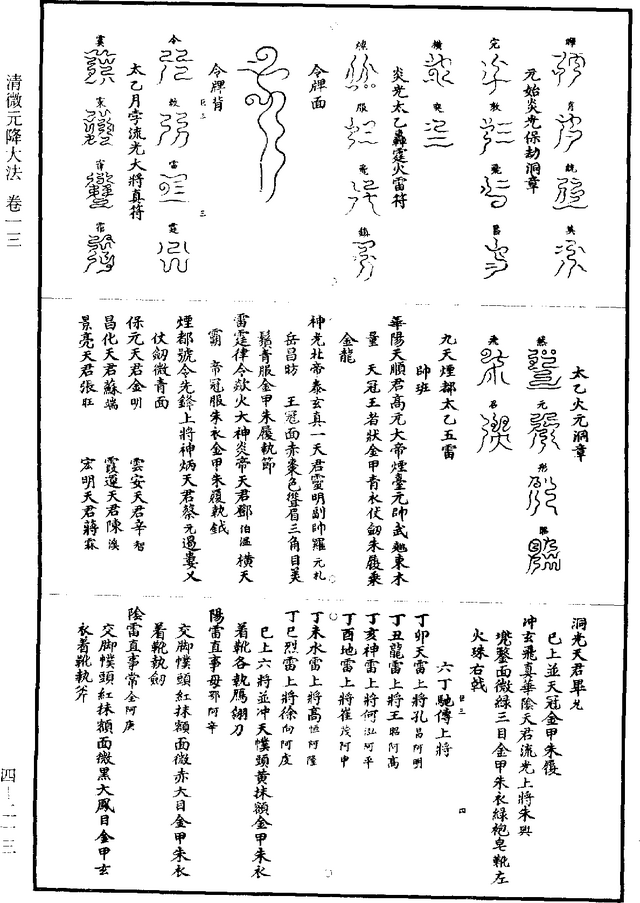 清微元降大法 卷一三
四—二一三
元始炎光保劫洞章
炎光太乙轟霆火雷符
令牌面
令牌背
太乙月孛流光大將真符
太乙火元洞章
九天煙都太乙五雷
帥班
華陽天順君高元大帝煙臺元帥武
量 天冠王者狀金甲青衣仗劒朱履乘
金龍
神光北帝泰玄真一天君靈明副帥羅元札
岳昌昉 王冠面赤棗色豎眉三角目美
鬚青服金甲朱履執節
雷霆律令欻火大神炎帝天君鄧伯溫橫天
霸 帝冠服朱衣金甲朱履執鉞
煙都號令先鋒上將神炳天君蔡元過婁又
仗劒微青面
保元天君金明 雲安天君辛智
昌化天君蘇端 霞運天君陳溪
景亮天君張旺 宏明天君蔣霖
洞光天君畢九
已上並天冠金甲朱履
冲玄飛真華陰天君流光上將朱與
兜鍪面微綠三目金甲朱衣綠袍皂靴左
火珠右戟
六丁馳傳上將
丁卯天雷上將孔昌阿明
丁丑龍雷上將王昭阿高
丁亥神雷上將何泓阿平
丁酉地雷上將崔茂阿申
丁未水雷上將高恒阿陸
丁巳烈雷上將徐向阿虔
已上六將並冲天幞頭黃抹額金甲朱衣
着靴各執鴈翎刀
陽雷直事毋鄂阿辛
交脚幞頭紅抹額面微赤大目金甲朱衣
着靴執劒
陰雷直事常全阿庚
交脚幞頭紅抹額面微黑大鳳目金甲玄
衣着靴執斧